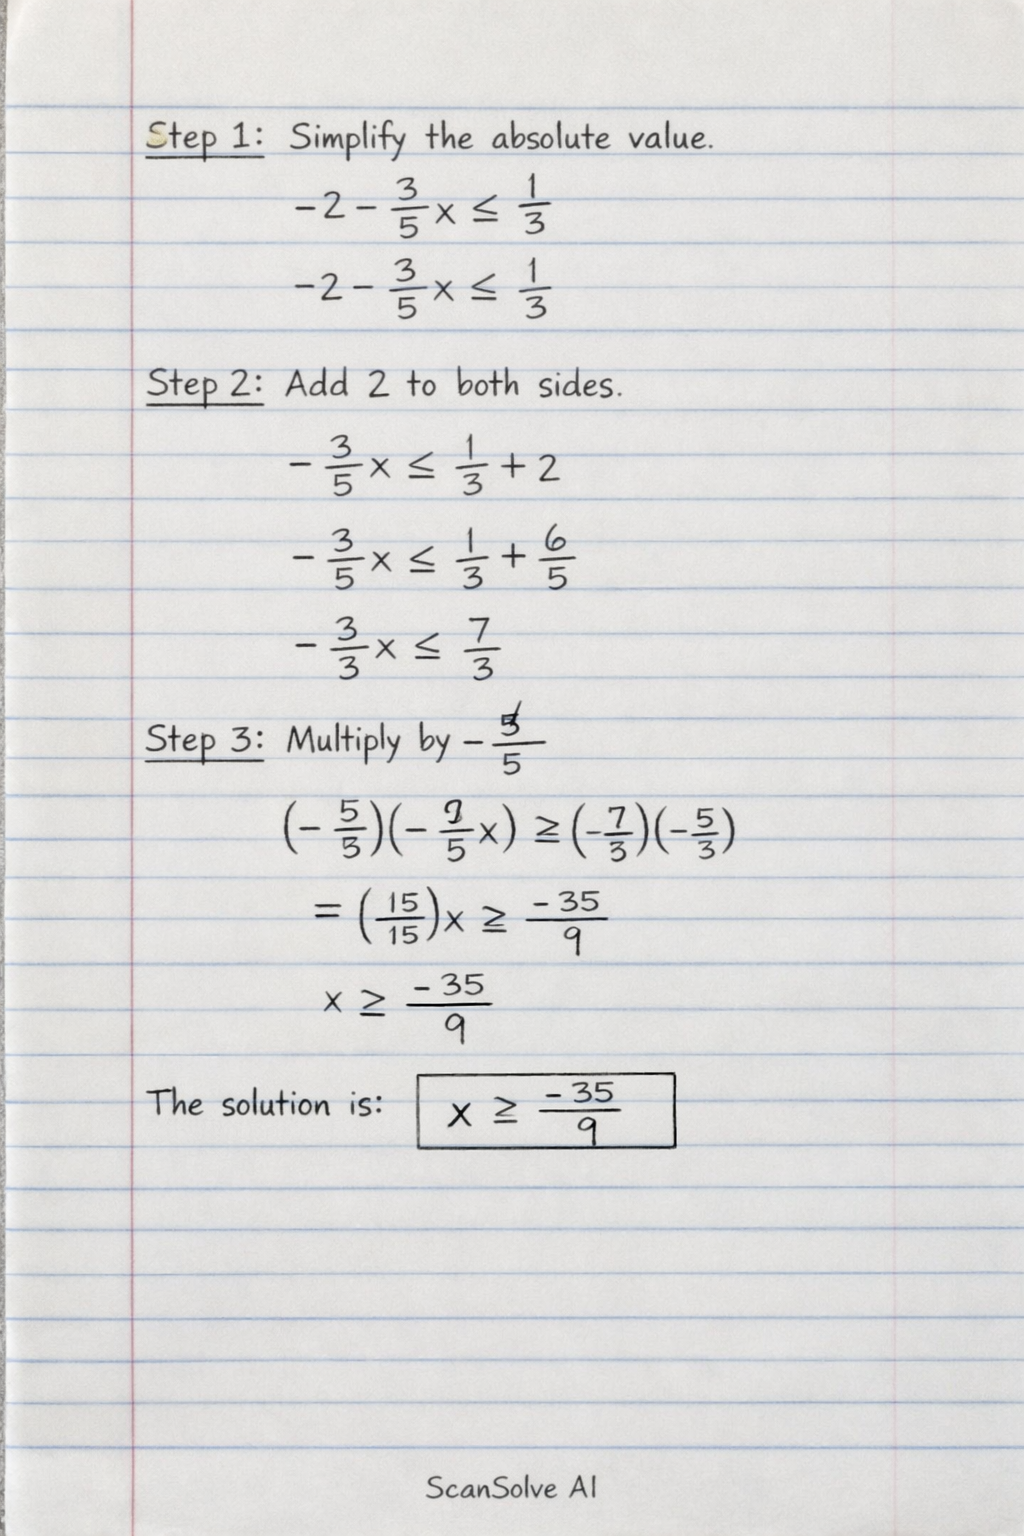 Step 1: Simplify the absolute value.
-2 - 3/5 x ≤ 1/3
-2 - 3/5 x ≤ 1/3
Step 2: Add 2 to both sides.
- 3/5 x ≤ 1/3 + 2
- 3/5 x ≤ 1/3 + 6/5
- 3/3 x ≤ 7/3
Step 3: Multiply by - 5/5
(- 5/3)(- 9/5 x) ≥ (- 7/3)(- 5/3)
= (15/15)x ≥ -35/9
x ≥ -35/9
The solution is: x ≥ -35/9
ScanSolve AI